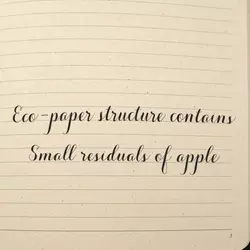 Eco-paper structure contains
Small residuals of apple